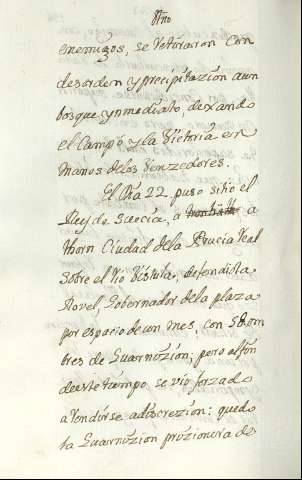 Año
enemigos, se retiraron con
desorden y precipitazion a un
bosque ynmediato, dexando
el Campo y la Victoria en
manos delos Venzedores.
El Dia 22 puso sitio el
Rey de Suecia, a a
thorn Ciudad dela Prucia Real
sobre el rio Vistula, defendiola
Rovel, Gobernador dela plaza
por espacio de un mes, con 5 hom
bres de Guarnizion; pero al fin
de este tiempo se vio forzado
a rendirse adiscrezion: quedo
la Guarnizion prizionera de